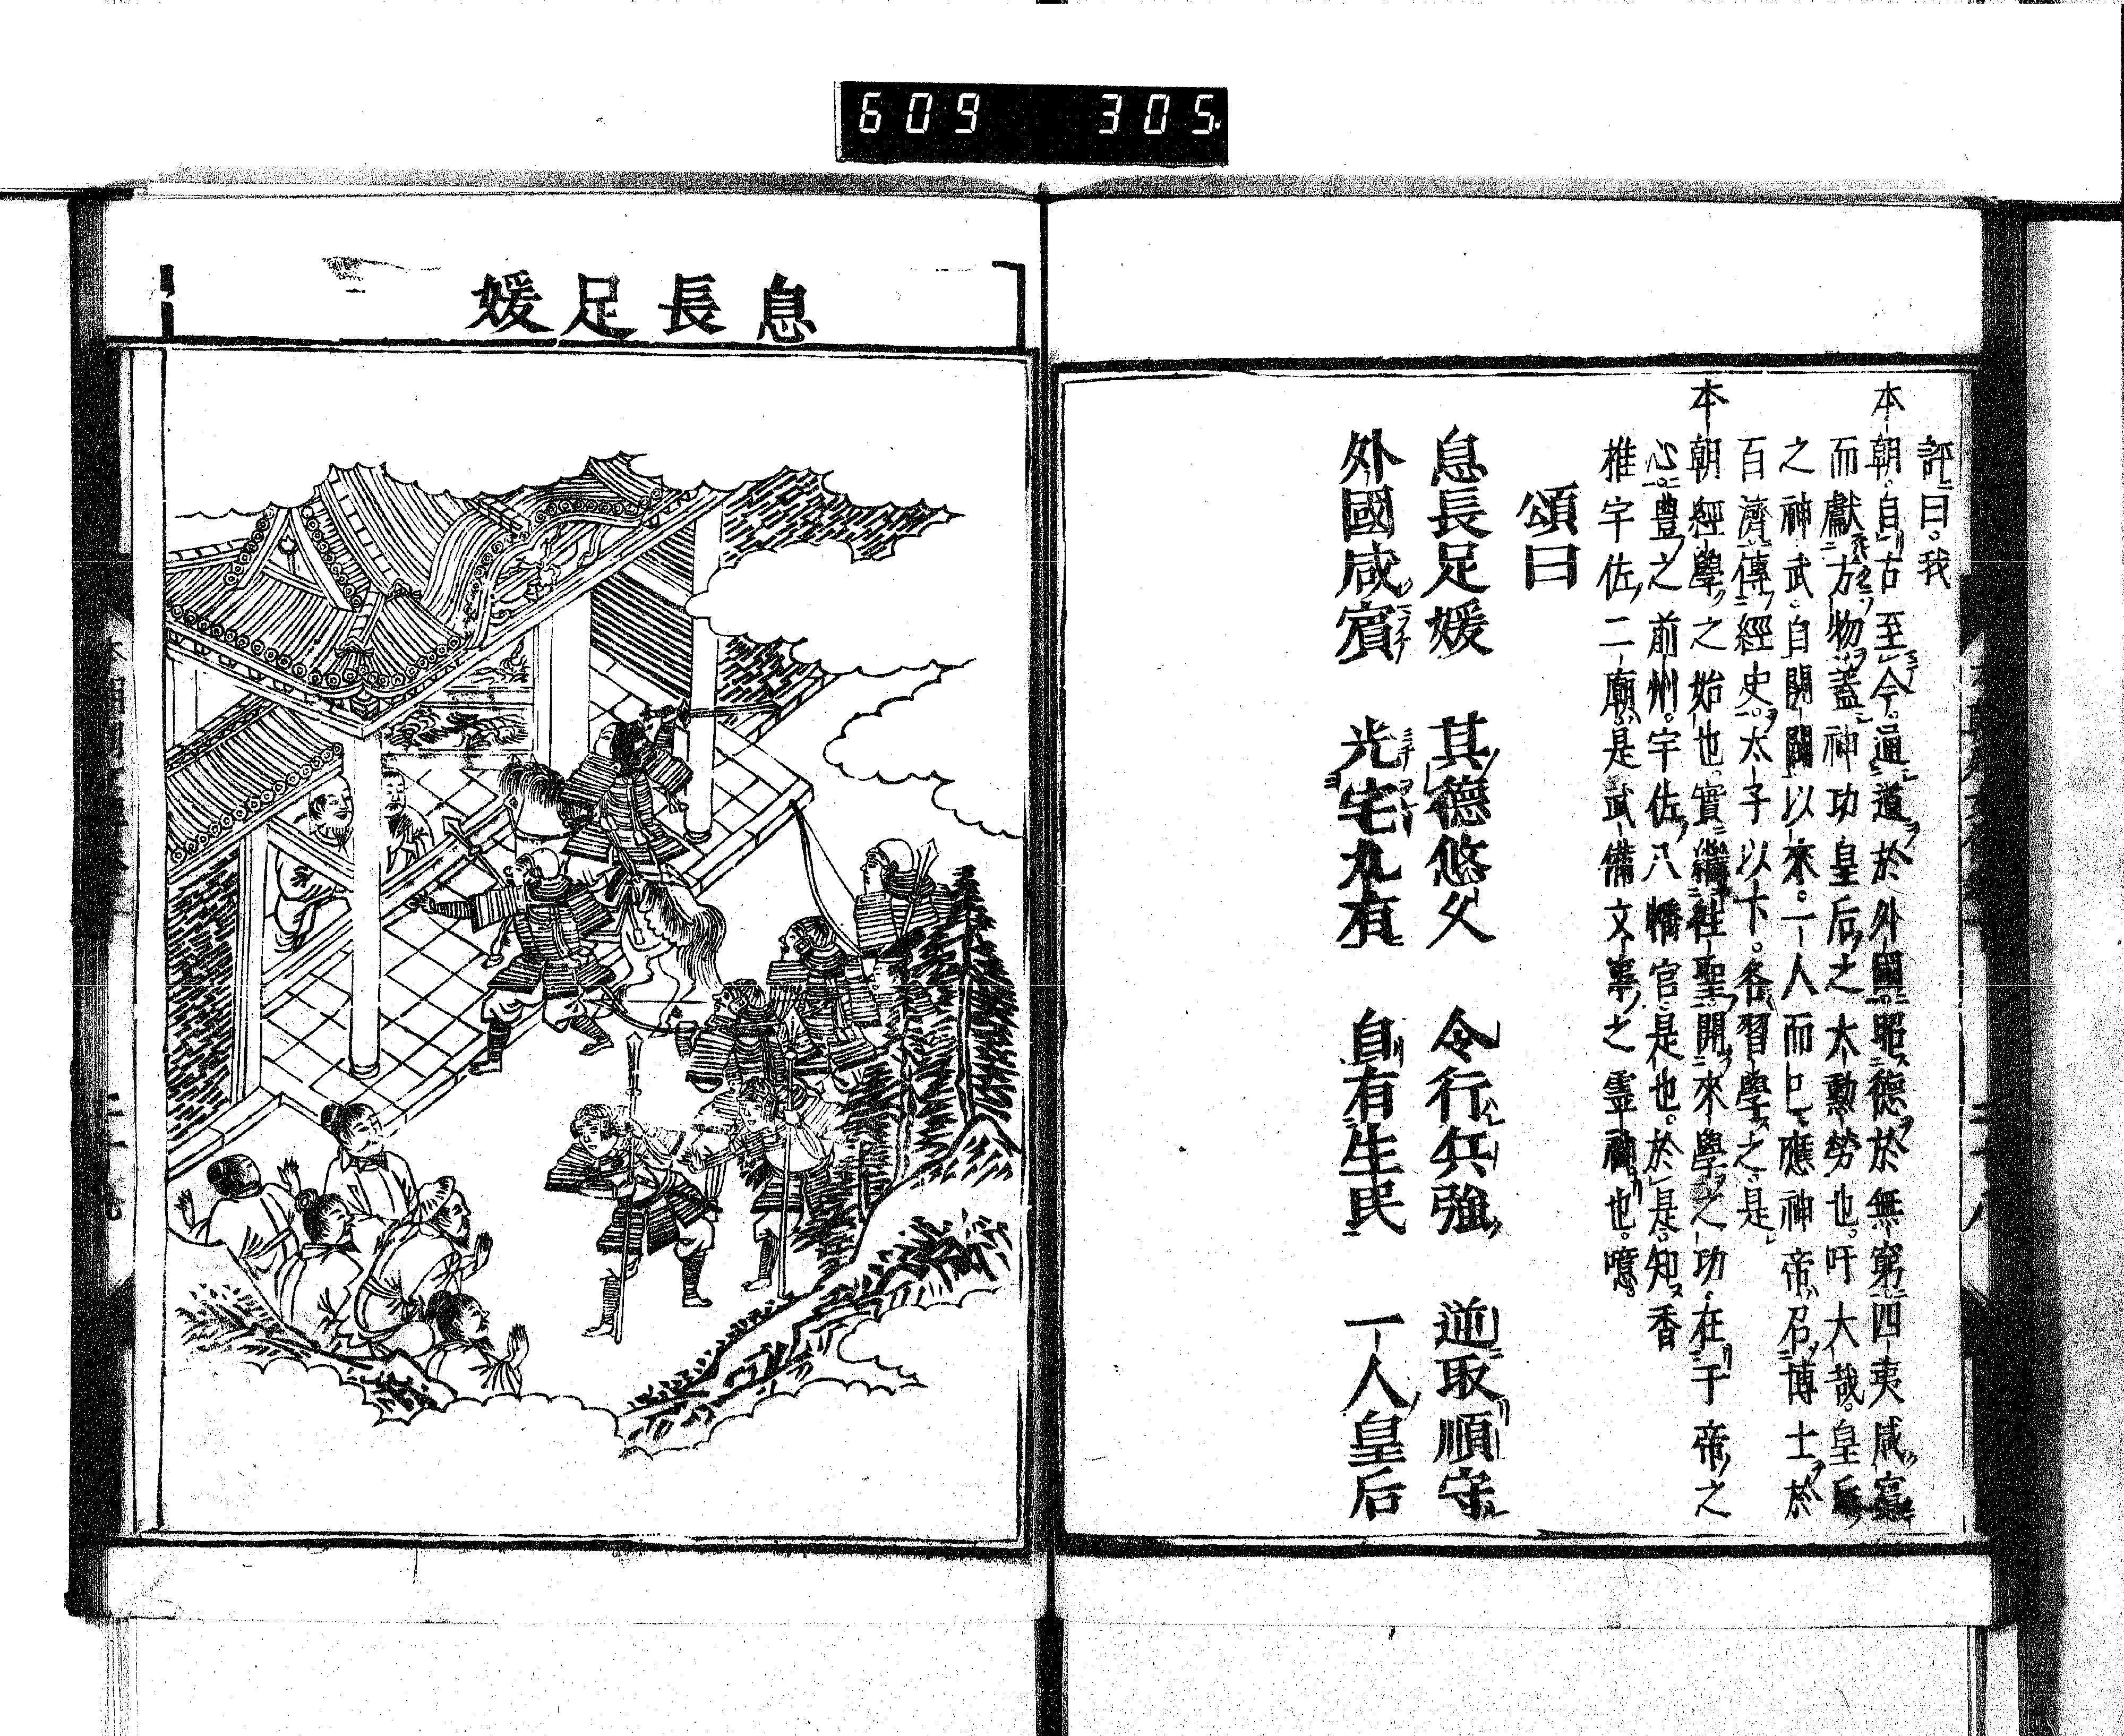 609 305
評曰我
本朝自古至今通道於外國昭德於無窮四夷咸賓
而獻方物蓋神功皇后之大勳勞也吁大哉皇后
之神武自開闢以來一人而已應神帝召博士於
百濟傳經史太子以下各習學之是
本朝經學之始也實繼往聖開來學之功在于帝之
心豊之前州宇佐八幡宮是也於是知香
椎宇佐二廟是武備文事之霊神也噫
頌曰
息長足媛 其德悠久 令行兵強 逆取順守
外國咸賓 光宅九有 自有生民 一人皇后
息長足媛